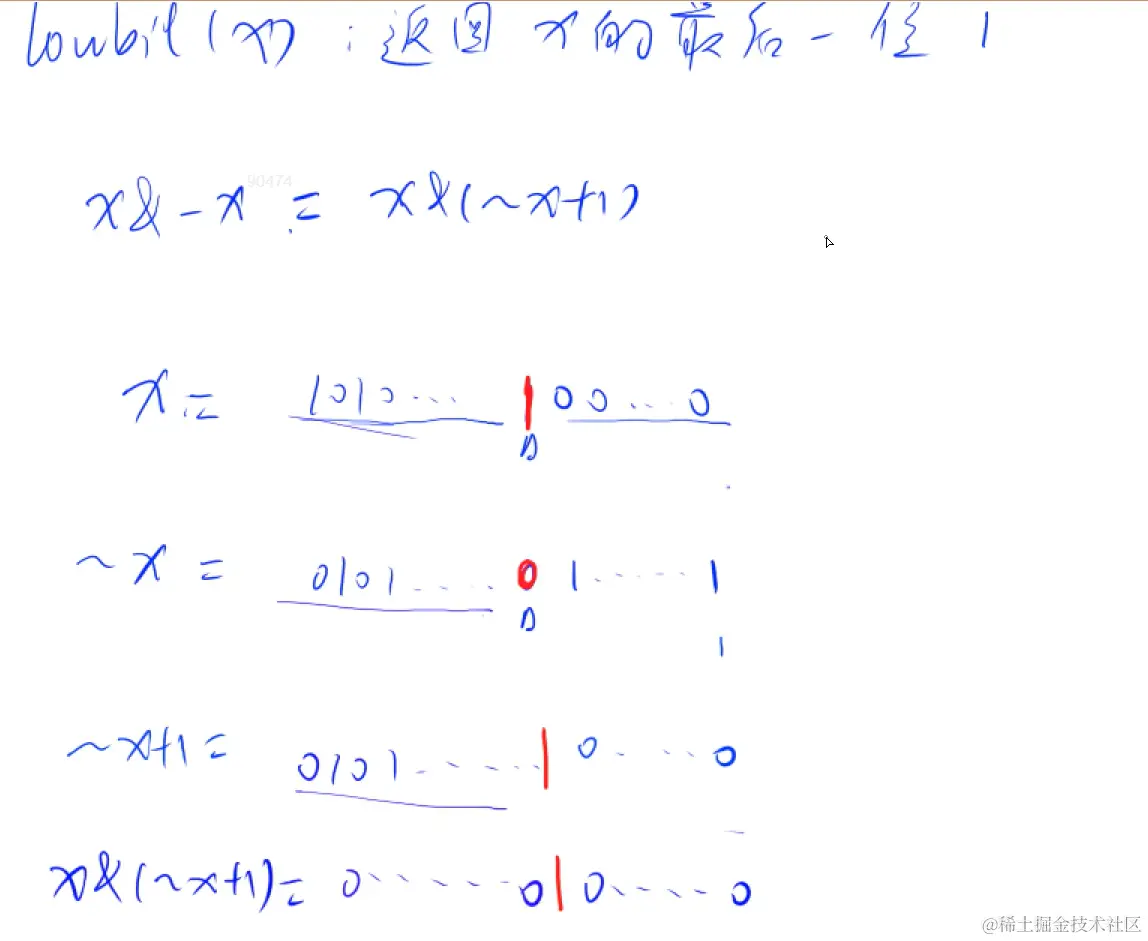 lowbit(x) : 返回 x 的最后一位 1
90474
x&-x = x&(~x+1)
x = 1010... 1 00...0
~x = 0101..... 0 1......1
1
~x+1 = 0101....... 1 0.....0
x&(~x+1) = 0......0 1 0.....0
@稀土掘金技术社区